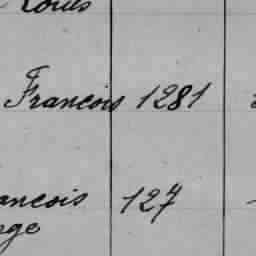 Louis
Francois 1281
ancois 127
ge